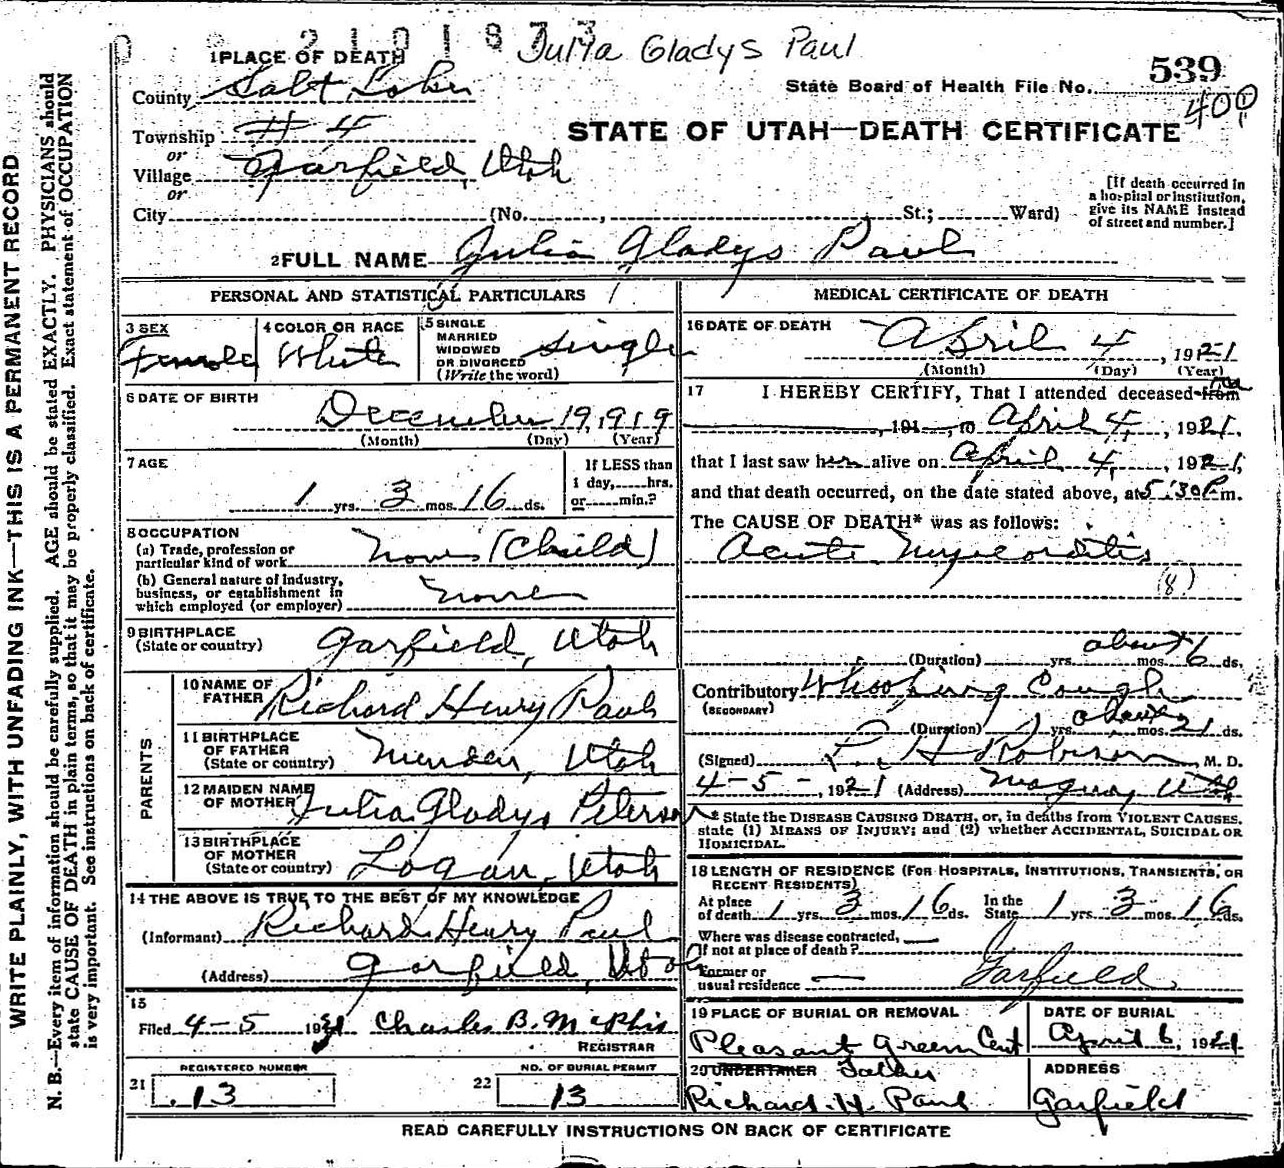 Julia Gladys Paul
1 PLACE OF DEATH
539
State Board of Health File No.
400
County Salt Lake
Township # 4
STATE OF UTAH—DEATH CERTIFICATE
or
Village Garfield, Utah
or
City (No. , St.; Ward)
[If death occurred in
a hospital or institution,
give its NAME instead
of street and number.]
2 FULL NAME Julia Gladys Paul
PERSONAL AND STATISTICAL PARTICULARS
3 SEX Female
4 COLOR OR RACE White
5 SINGLE
MARRIED
WIDOWED
OR DIVORCED
(Write the word)
Single
6 DATE OF BIRTH
December 19, 1919
(Month) (Day) (Year)
7 AGE
1 yrs. 3 mos. 16 ds.
If LESS than
1 day, hrs.
or min.?
8 OCCUPATION
(a) Trade, profession or
particular kind of work None (Child)
(b) General nature of industry,
business, or establishment in
which employed (or employer) none
9 BIRTHPLACE
(State or country) Garfield, Utah
PARENTS
10 NAME OF
FATHER Richard Henry Paul
11 BIRTHPLACE
OF FATHER
(State or country) Utah
12 MAIDEN NAME
OF MOTHER Julia Gladys Peterson
13 BIRTHPLACE
OF MOTHER
(State or country) Logan, Utah
14 THE ABOVE IS TRUE TO THE BEST OF MY KNOWLEDGE
(Informant) Richard Henry Paul
(Address) Garfield, Utah
15
Filed 4-5 1921 Charles B. McPhie
REGISTRAR
REGISTERED NUMBER
21 13
NO. OF BURIAL PERMIT
22 13
MEDICAL CERTIFICATE OF DEATH
16 DATE OF DEATH
April 4, 1921
(Month) (Day) (Year)
17 I HEREBY CERTIFY, That I attended deceased from
, 191 , to April 4, 1921.
that I last saw her alive on April 4, 1921,
and that death occurred, on the date stated above, at 5:30 P.m.
The CAUSE OF DEATH* was as follows:
Acute Myocarditis
(8)
(Duration) yrs. mos. about 6 ds.
Contributory Whooping Cough
(SECONDARY)
(Duration) yrs. mos. about 21 ds.
(Signed) Robinson, M. D.
4-5-, 1921 (Address) Magna, Utah
* State the DISEASE CAUSING DEATH, or, in deaths from VIOLENT CAUSES,
state (1) MEANS OF INJURY; and (2) whether ACCIDENTAL, SUICIDAL OR
HOMICIDAL.
18 LENGTH OF RESIDENCE (FOR HOSPITALS, INSTITUTIONS, TRANSIENTS, OR
RECENT RESIDENTS)
At place
of death 1 yrs. 3 mos. 16 ds.
In the
State 1 yrs. 3 mos. 16 ds.
Where was disease contracted,
if not at place of death? —
Former or
usual residence — Garfield.
19 PLACE OF BURIAL OR REMOVAL
Pleasant Green Cem
DATE OF BURIAL
April 6, 1921
20 UNDERTAKER Father
Richard H. Paul
ADDRESS
Garfield
READ CAREFULLY INSTRUCTIONS ON BACK OF CERTIFICATE
WRITE PLAINLY, WITH UNFADING INK—THIS IS A PERMANENT RECORD
N. B.—Every item of information should be carefully supplied. AGE should be stated EXACTLY. PHYSICIANS should
state CAUSE OF DEATH in plain terms, so that it may be properly classified. Exact statement of OCCUPATION
is very important. See instructions on back of certificate.